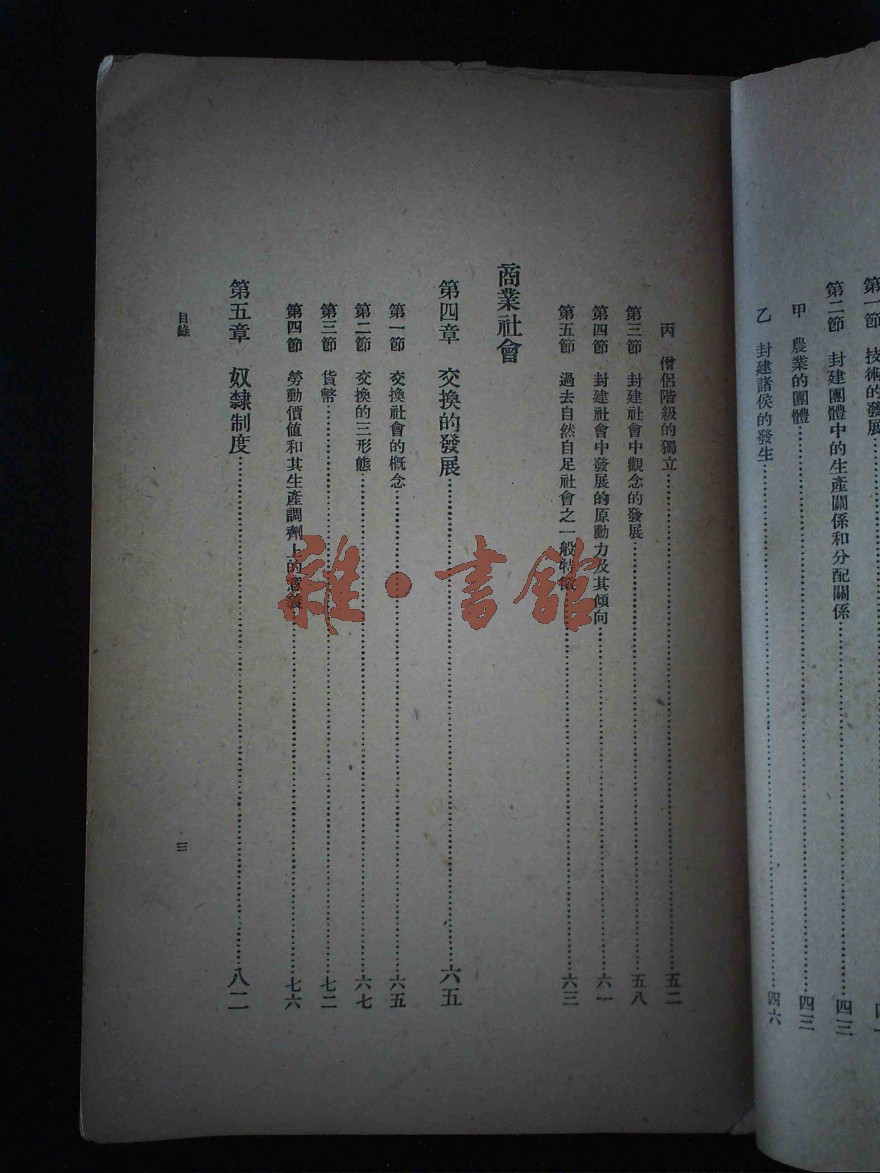 第一節　技術的發展
第二節　封建團體中的生產關係和分配關係……四三
甲　農業的團體……四三
乙　封建諸侯的發生……四六
丙　僧侶階級的獨立……五二
第三節　封建社會中觀念的發展……五八
第四節　封建社會中發展的原動力及其傾向……六一
第五節　過去自然自足社會之一般特徵……六三
商業社會
第四章　交換的發展……六五
第一節　交換社會的概念……六五
第二節　交換的三形態……六七
第三節　貨幣……七二
第四節　勞動價值和其生產調劑上的意義……七六
第五章　奴隸制度……八二
目錄
三
雜·書館